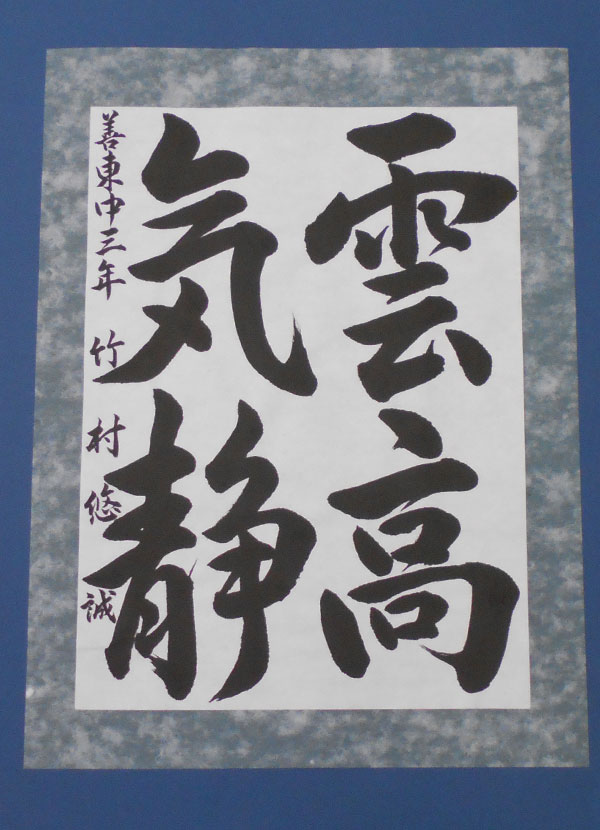 雲高
気静
善東中三年 竹村悠誠